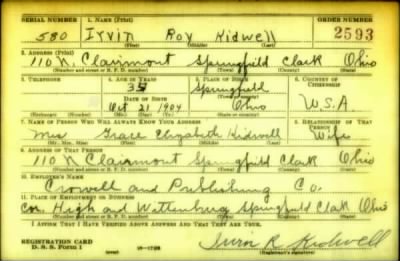 SERIAL NUMBER 1. NAME (Print) ORDER NUMBER
580 Irvin Roy Kidwell 2593
(First) (Middle) (Last)
2. ADDRESS (Print)
110 N. Clairmont Springfield Clark Ohio
(Number and street or R. F. D. number) (Town) (County) (State)
3. TELEPHONE 4. AGE IN YEARS 5. PLACE OF BIRTH 6. COUNTRY OF CITIZENSHIP
35 Springfield
DATE OF BIRTH
Oct 21 1904 Ohio U.S.A.
7. NAME OF PERSON WHO WILL ALWAYS KNOW YOUR ADDRESS 8. RELATIONSHIP OF THAT PERSON
Mrs Grace Elizabeth Kidwell Wife
(Mr., Mrs., Miss) (First) (Middle) (Last)
9. ADDRESS OF THAT PERSON
110 N Clairmont Springfield Clark Ohio
(Number and street or R. F. D. number) (Town) (County) (State)
10. EMPLOYER'S NAME
Crowell and Publishing Co.
11. PLACE OF EMPLOYMENT OR BUSINESS
Cor. High and Wittenburg Springfield Clark Ohio
(Number and street or R. F. D. number) (Town) (County) (State)
I AFFIRM THAT I HAVE VERIFIED ABOVE ANSWERS AND THAT THEY ARE TRUE.
REGISTRATION CARD
D. S. S. FORM 1 Irvin R. Kidwell
(Registrant's signature)